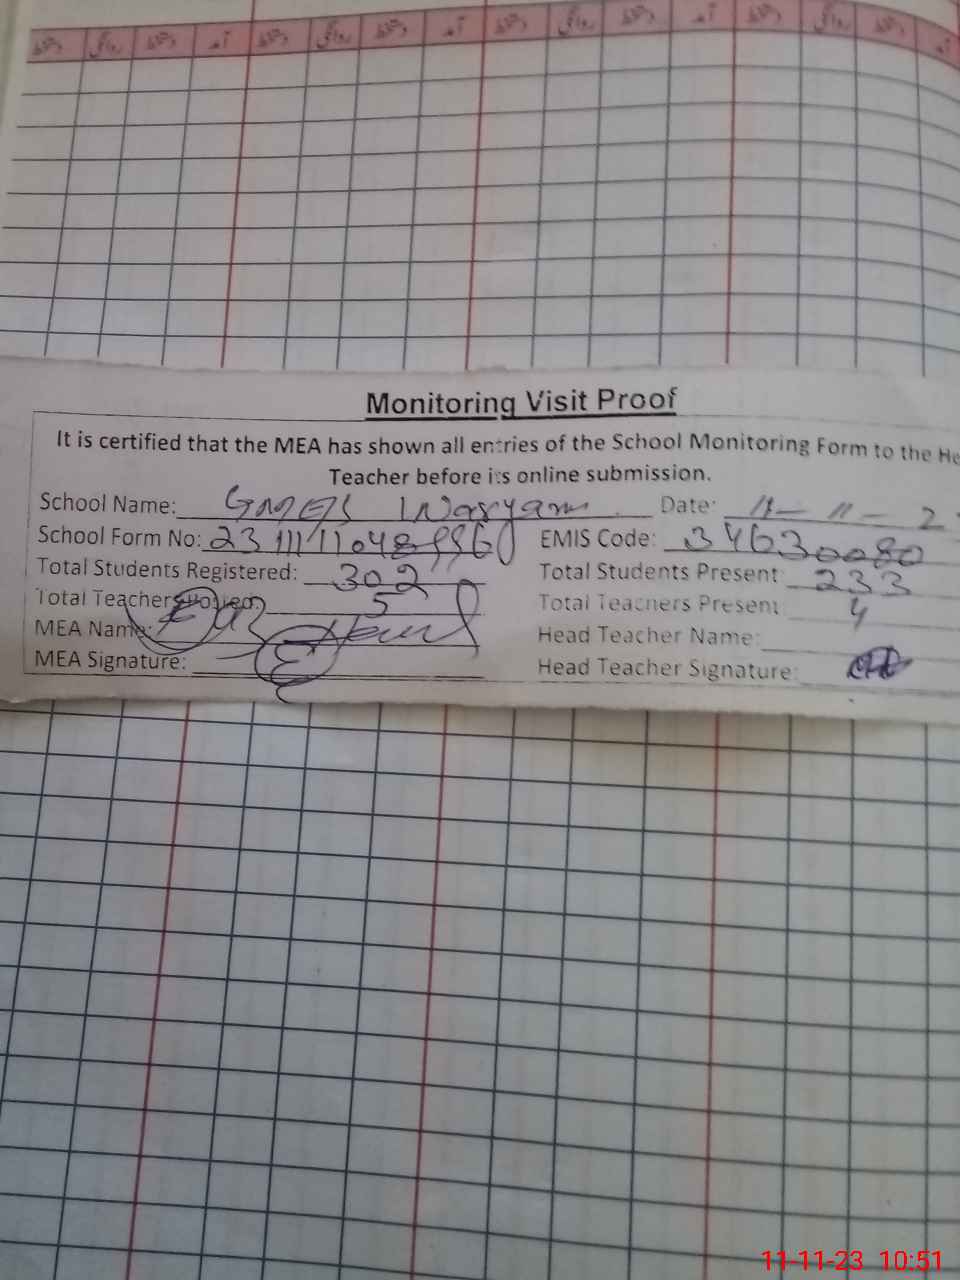 دستخط روانگی دستخط آمد دستخط روانگی دستخط آمد دستخط روانگی دستخط آمد دستخط روانگی دستخط آمد
Monitoring Visit Proof
It is certified that the MEA has shown all entries of the School Monitoring Form to the He
Teacher before its online submission.
School Name: Waryam Date: 11- 11- 2
School Form No: EMIS Code: 34630080
Total Students Registered: 302 Total Students Present: 233
Total Teachers Posted: 5 Total Teachers Present: 4
MEA Name: Head Teacher Name:
MEA Signature: Head Teacher Signature:
11-11-23 10:51